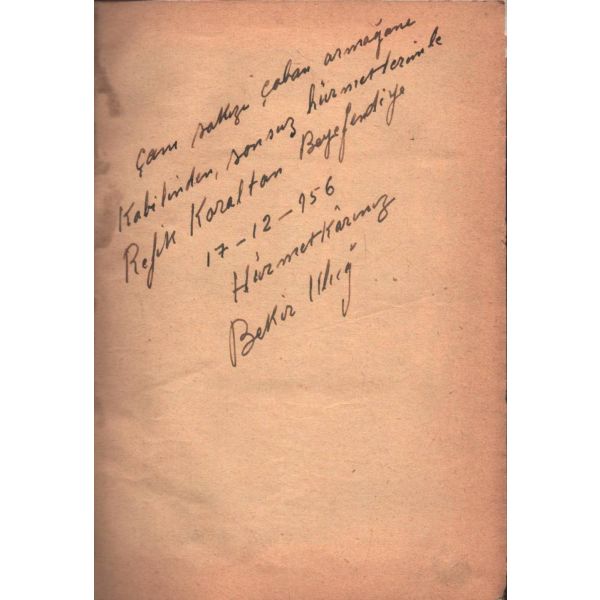 Çam sakızı çoban armağanı
Kabilinden, sonsuz hürmetlerimle
Refik Koraltan Beyefendiye
17-12-956
Hürmetkârınız
Bekir